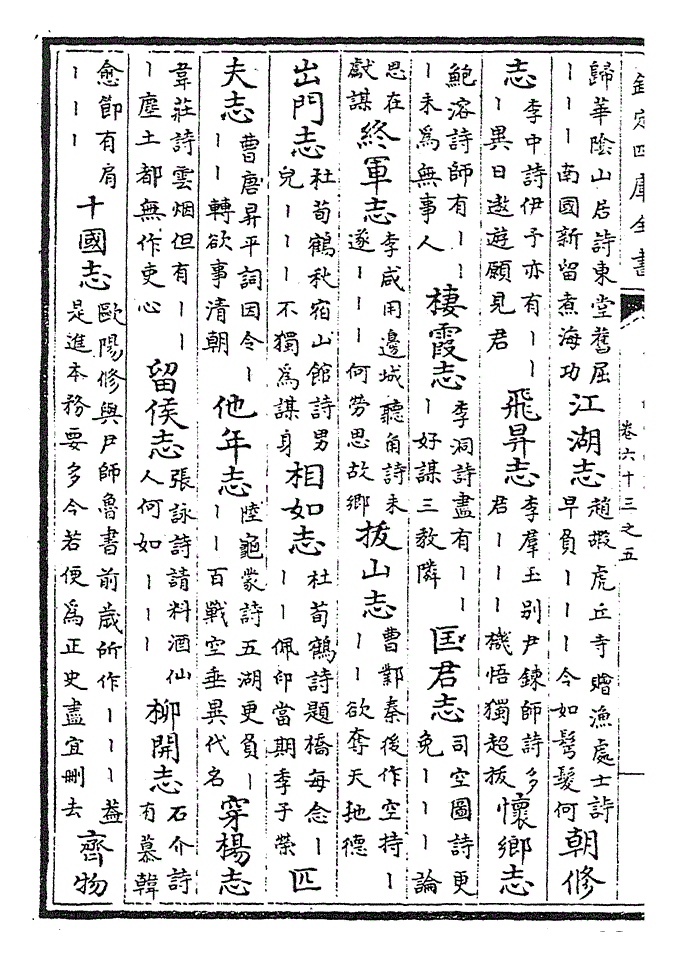 欽定四庫全書 卷六十三之五
歸華陰山居詩東堂舊屈｜｜｜南國新留煮海功 江湖志 趙嘏虎丘寺贈漁處士詩早負｜｜｜今如髩髮何 朝修
志 李中詩伊予亦有｜｜｜異日遨遊願見君 飛昇志 李羣玉别尹鍊師詩多君｜｜｜機悟獨超拔 懷鄉志
鮑溶詩師有｜｜｜未爲無事人 棲霞志 李洞詩盡有｜｜｜好謀三教隣 匡君志 司空圖詩更免｜｜｜論
思在獻謀 終軍志 李咸用邊城聽角詩未遂｜｜｜何勞思故鄉 拔山志 曹鄴秦後作空持｜｜｜欲奪天地德
出門志 杜荀鶴秋宿山館詩男兒｜｜｜不獨爲謀身 相如志 杜荀鶴詩題橋每念｜｜｜佩印當期季子榮 匹
夫志 曹唐昇平詞因令｜｜｜轉欲事清朝 他年志 陸龜蒙詩五湖更負｜｜｜百戰空垂異代名 穿楊志
韋莊詩雲烟但有｜｜｜塵土都無作吏心 留侯志 張詠詩請料酒仙人何如｜｜｜ 柳開志 石介詩有慕韓
愈節有肩｜｜｜ 十國志 歐陽修與尹師魯書前歲所作｜｜｜葢是進本務要多今若便爲正史盡宜刪去 齊物